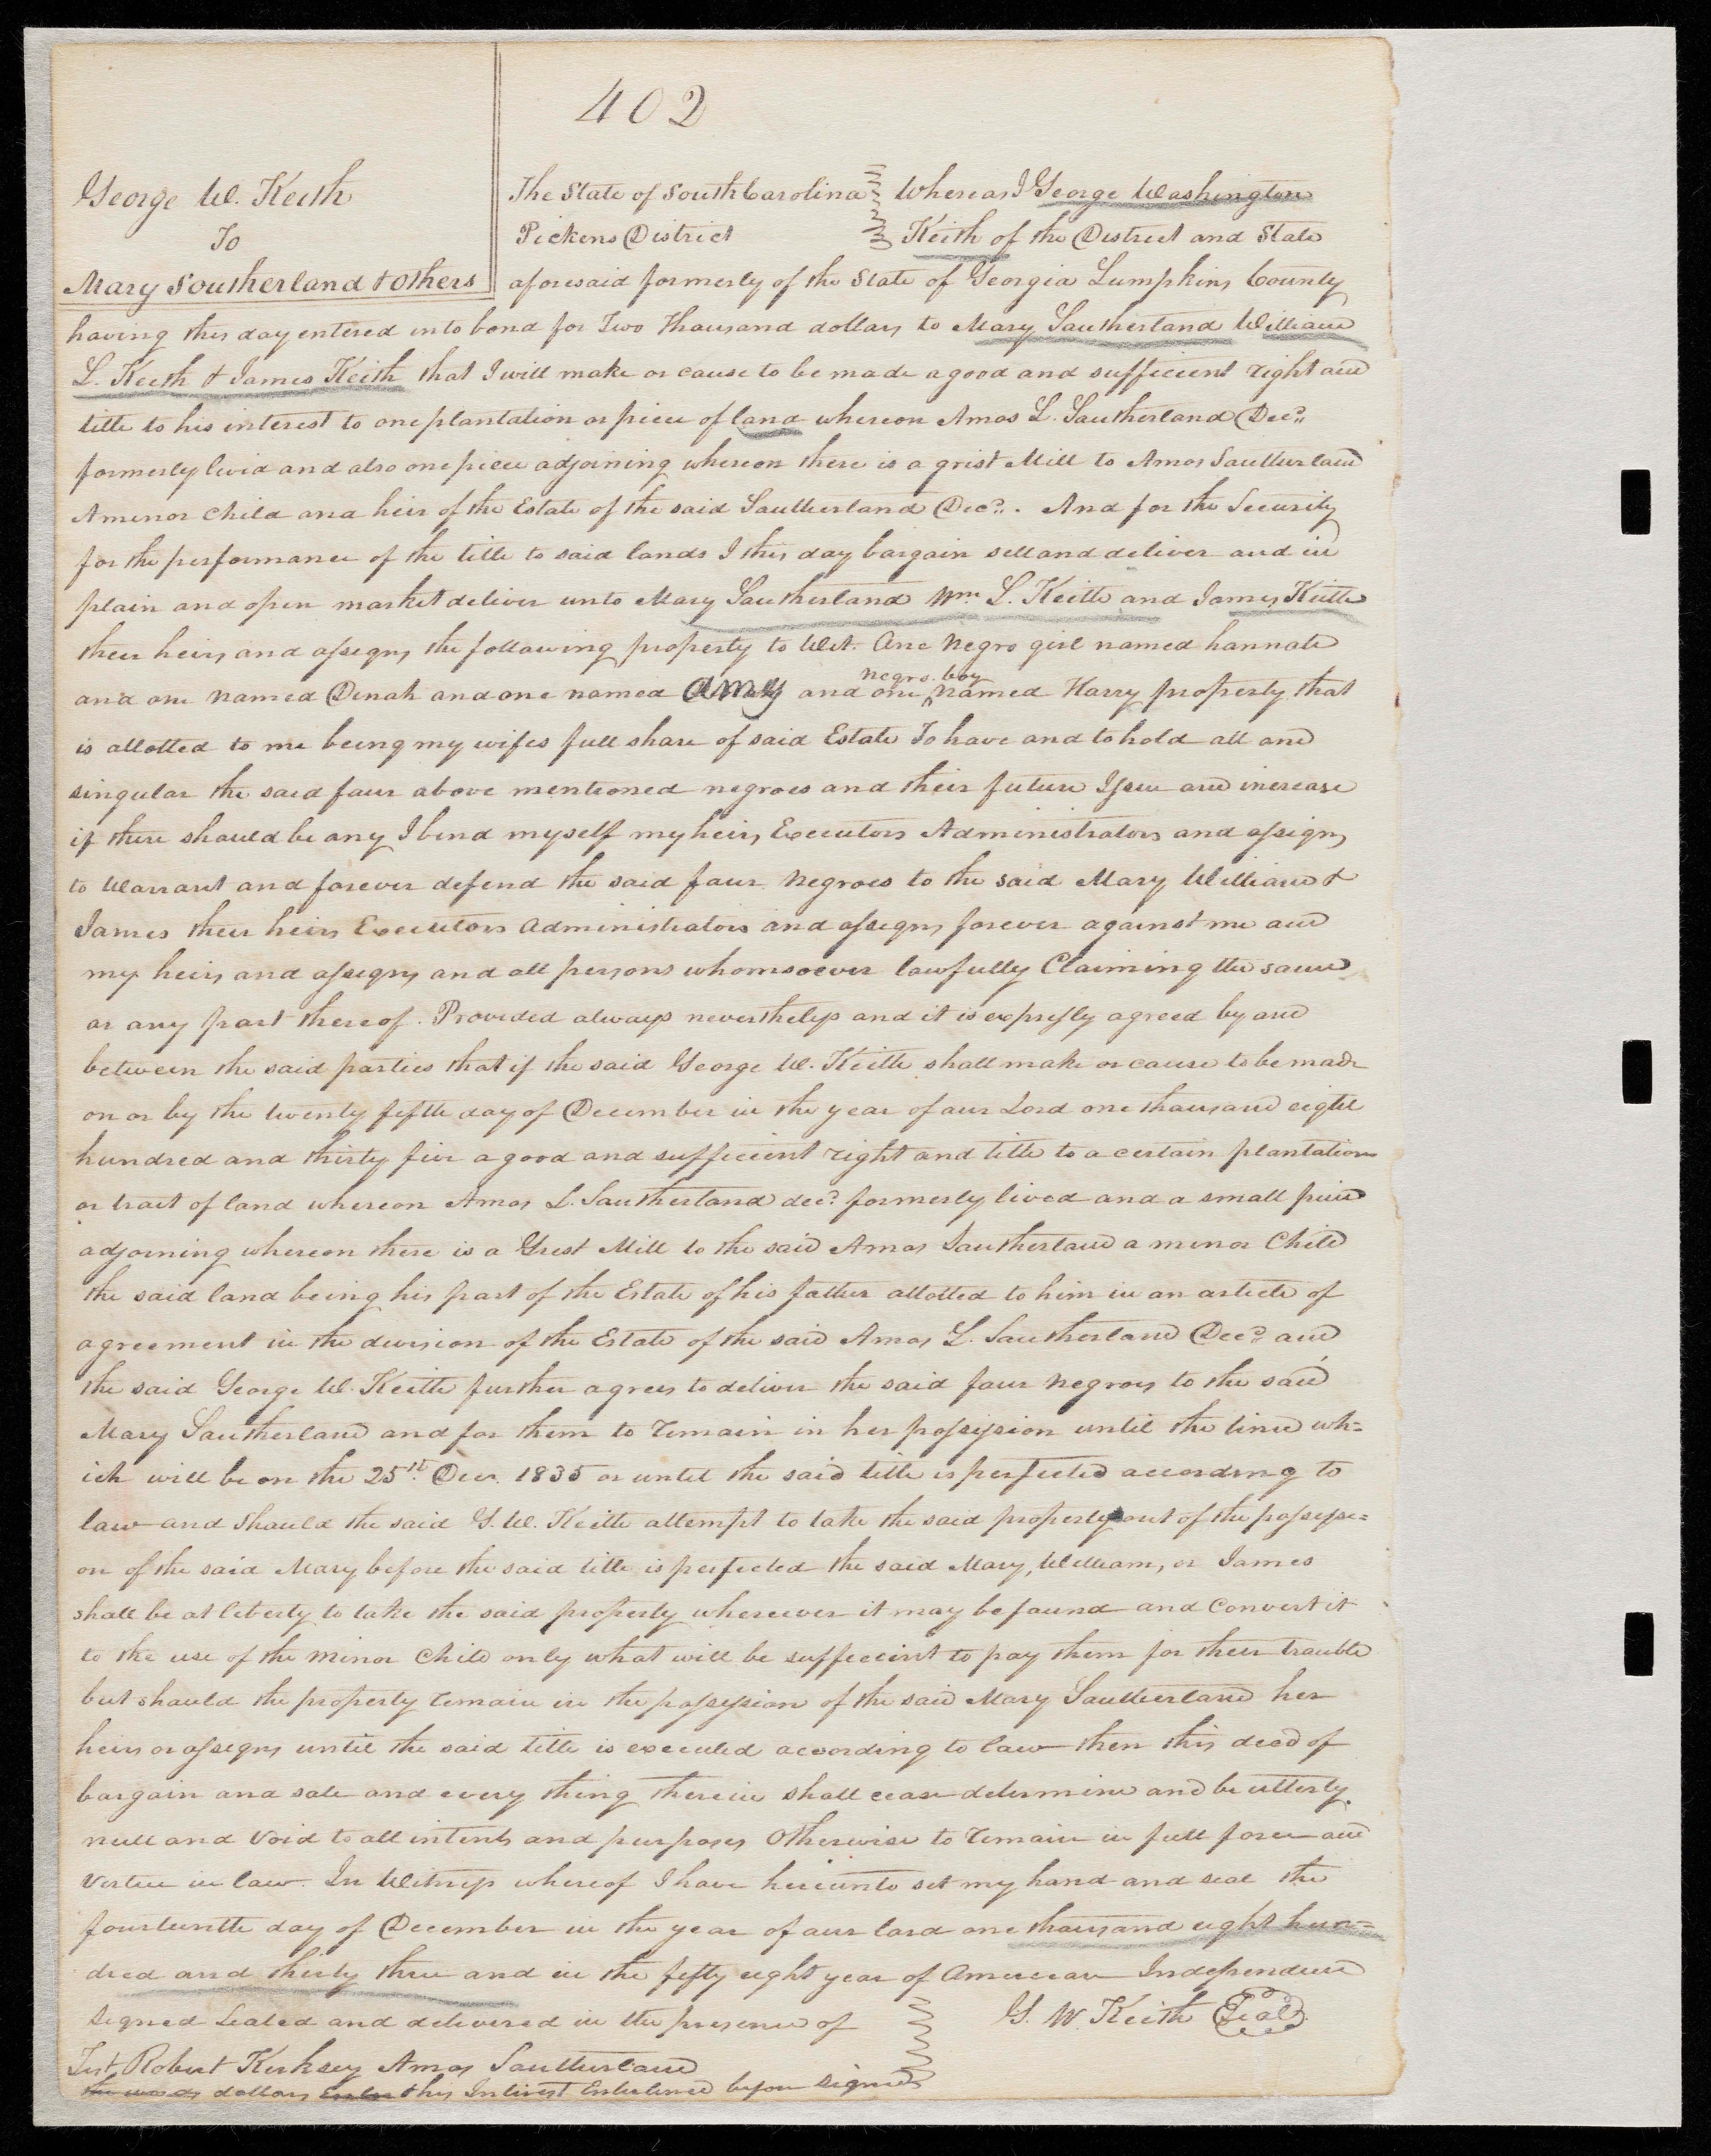 402
George W. Keith
To
Mary Southerland & others
The State of South Carolina Whereas I George Washington
Pickens District Keith of the District and State
aforesaid formerly of the State of Georgia Lumpkins County
having this day entered into bond for Two Thousand dollars to Mary Southerland William
L. Keith & James Keith that I will make or cause to be made a good and sufficient right and
title to his interest to one plantation or piece of land whereon Amos L. Southerland Decd.
formerly livid and also one piece adjoining whereon there is a grist Mill to Amos Southerland
A minor Child and heir of the Estate of the said Southerland Decd. And for the Security
for the performance of the title to said lands I this day bargain sell and deliver and in
plain and open market deliver unto Mary Southerland Wm L. Keith and James Keith
their heirs and assigns the following property to Wit. One Negro girl named hannah
negro boy
and one named Dinah and one named amy and one named Harry property that
is allotted to me being my wifes full share of said Estate To have and to hold all and
singular the said four above mentioned negroes and their future Issue and increase
if there should be any I bind myself my heirs Executors Administrators and assigns
to Warrant and forever defend the said four Negroes to the said Mary William &
James their heirs Executors administrators and assigns forever against me and
my heirs and assigns and all persons whomsoever lawfully Claiming the same
or any part thereof. Provided always nevertheless and it is expressly agreed by and
between the said parties that if the said George W. Keith shall make or cause to be made
on or by the twenty fifth day of December in the year of our Lord one thousand eight
hundred and thirty five a good and sufficient right and title to a certain plantation
or tract of land whereon Amos L. Southerland decd. formerly lived and a small piece
adjoining whereon there is a Grist Mill to the said Amos Southerland a minor Child
the said land being his part of the Estate of his father allotted to him in an article of
agreement in the division of the Estate of the said Amos L. Southerland Decd. and
the said George W. Keith further agrees to deliver the said four Negroes to the said
Mary Southerland and for them to remain in her possession until the time wh=
ich will be on the 25th. Decr. 1835 or until the said title is perfected according to
law and should the said G. W. Keith attempt to take the said property out of the possessi=
on of the said Mary before the said title is perfected the said Mary, William, or James
shall be at liberty to take the said property wherever it may be found and Convert it
to the use of the minor Child only what will be sufficient to pay them for their trouble
but should the property remain in the possession of the said Mary Southerland her
heirs or assigns until the said title is executed according to law then this deed of
bargain and sale and every thing therein shall cease determine and be utterly
null and void to all intents and purposes Otherwise to remain in full force and
virtue in law. In Witness whereof I have hereunto set my hand and seal the
fourteenth day of December in the year of our lord one thousand eight hun=
dred and thirty three and in the fifty eight year of American Independence
Signed Sealed and delivered in the presence of G. W. Keith Seal
Test Robert Kirksey Amos Southerland
the words dollars this Interest Enterlined before signed